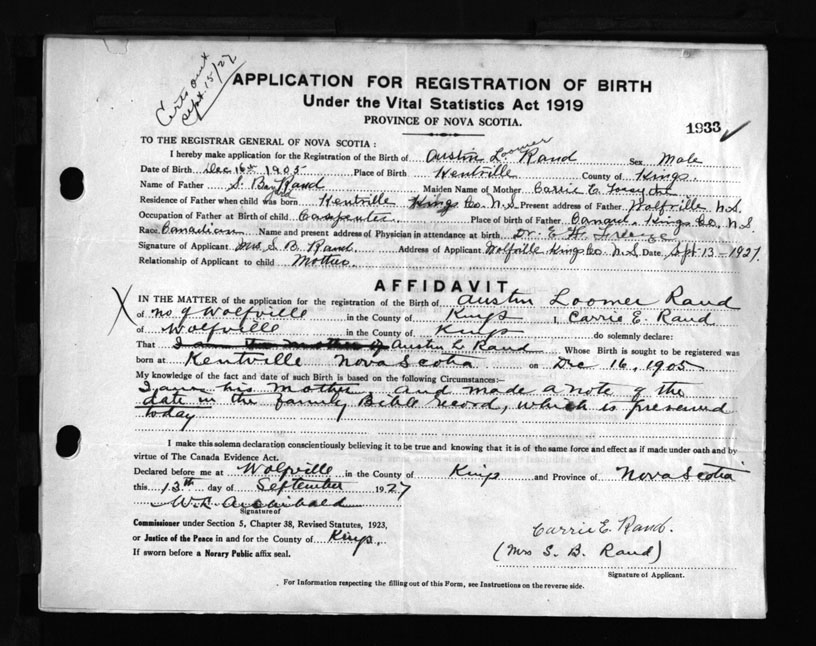 Certs out
Sept. 15/27
APPLICATION FOR REGISTRATION OF BIRTH
Under the Vital Statistics Act 1919
PROVINCE OF NOVA SCOTIA.
1933
TO THE REGISTRAR GENERAL OF NOVA SCOTIA :
I hereby make application for the Registration of the Birth of Austin Loomer Rand Sex Male
Date of Birth Dec 16th 1905 Place of Birth Kentville County of Kings
Name of Father S. B. Rand Maiden Name of Mother Carrie E. Forsythe
Residence of Father when child was born Kentville Kings Co. N.S. Present address of Father Wolfville N.S.
Occupation of Father at Birth of child Carpenter Place of birth of Father Canard Kings Co. N.S
Race Canadian Name and present address of Physician in attendance at birth Dr. E. H.
Signature of Applicant Mrs. S. B. Rand Address of Applicant Wolfville Kings Co. N.S. Date Sept 13-1927.
Relationship of Applicant to child Mother
AFFIDAVIT
IN THE MATTER of the application for the registration of the Birth of Austin Loomer Rand
of no. 9 Wolfville in the County of Kings I, Carrie E. Rand
of Wolfville in the County of Kings do solemnly declare:
That I am the mother of Austin L Rand Whose Birth is sought to be registered was
born at Kentville Nova Scotia on Dec 16, 1905
My knowledge of the fact and date of such Birth is based on the following Circumstances:—
I am his Mother and made a note of the
date in the family Bible record, which is preserved
today
I make this solemn declaration conscientiously believing it to be true and knowing that it is of the same force and effect as if made under oath and by
virtue of The Canada Evidence Act.
Declared before me at Wolfville in the County of Kings and Province of Nova Scotia
this 13th day of September 1927
W. L. Archibald
Signature of
Commissioner under Section 5, Chapter 38, Revised Statutes, 1923,
or Justice of the Peace in and for the County of Kings
If sworn before a Norary Public affix seal.
Carrie E. Rand.
(Mrs S. B. Rand)
Signature of Applicant.
For Information respecting the filling out of this Form, see Instructions on the reverse side.